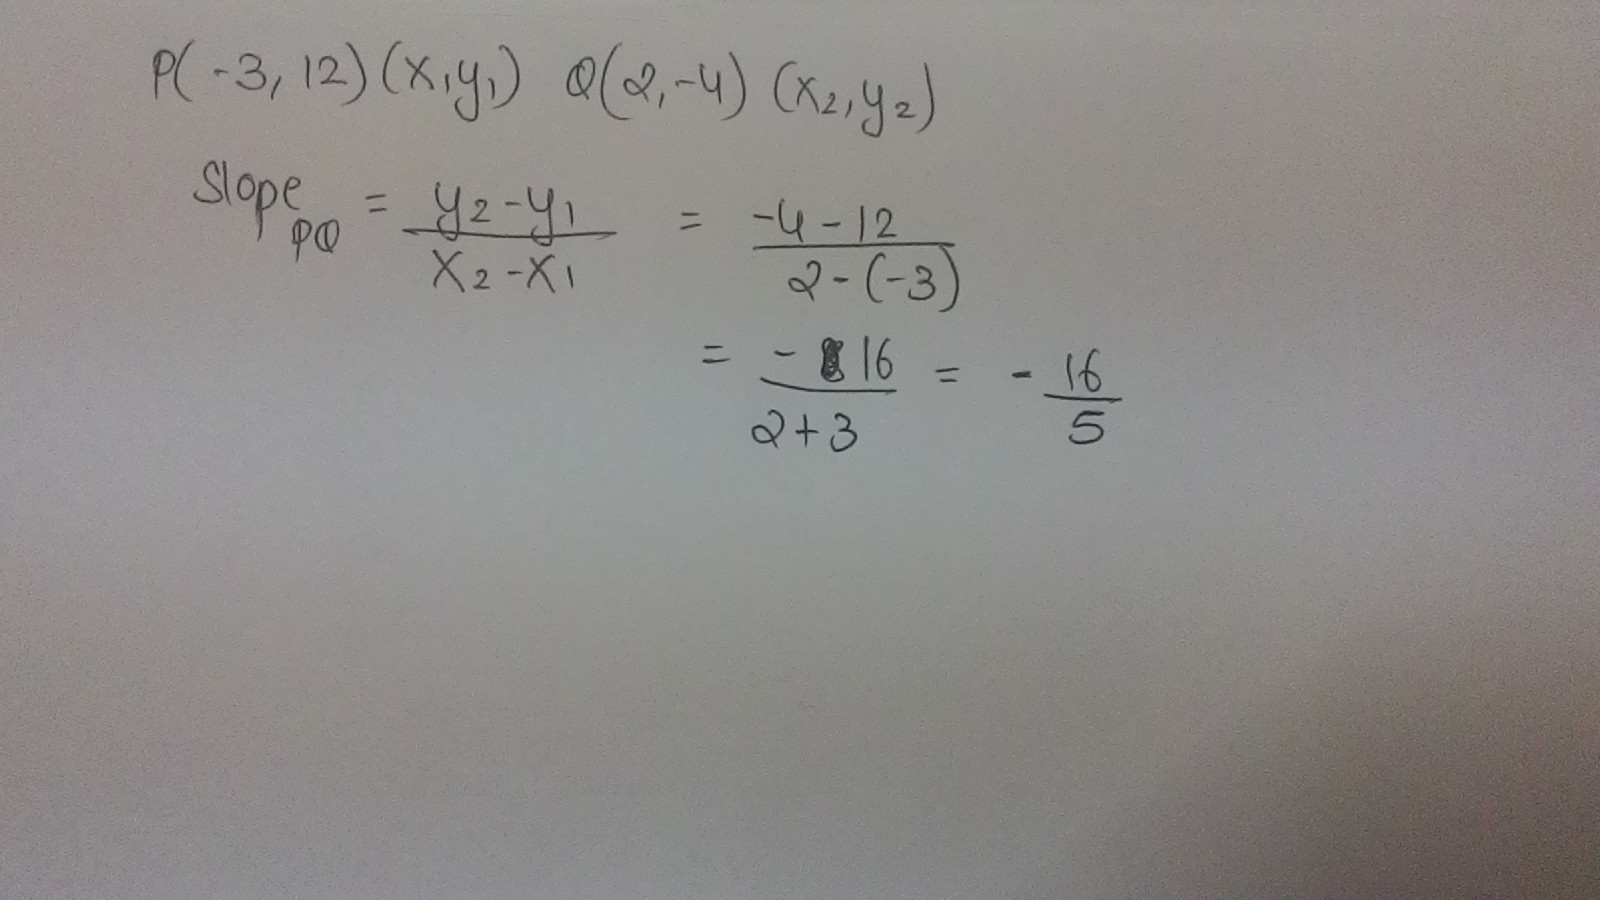 P(-3, 12) (x₁y₁) Q(2,-4) (x₂,y₂)
Slope PQ = y₂-y₁ / x₂-x₁ = -4-12 / 2-(-3)
= -16 / 2+3 = - 16 / 5